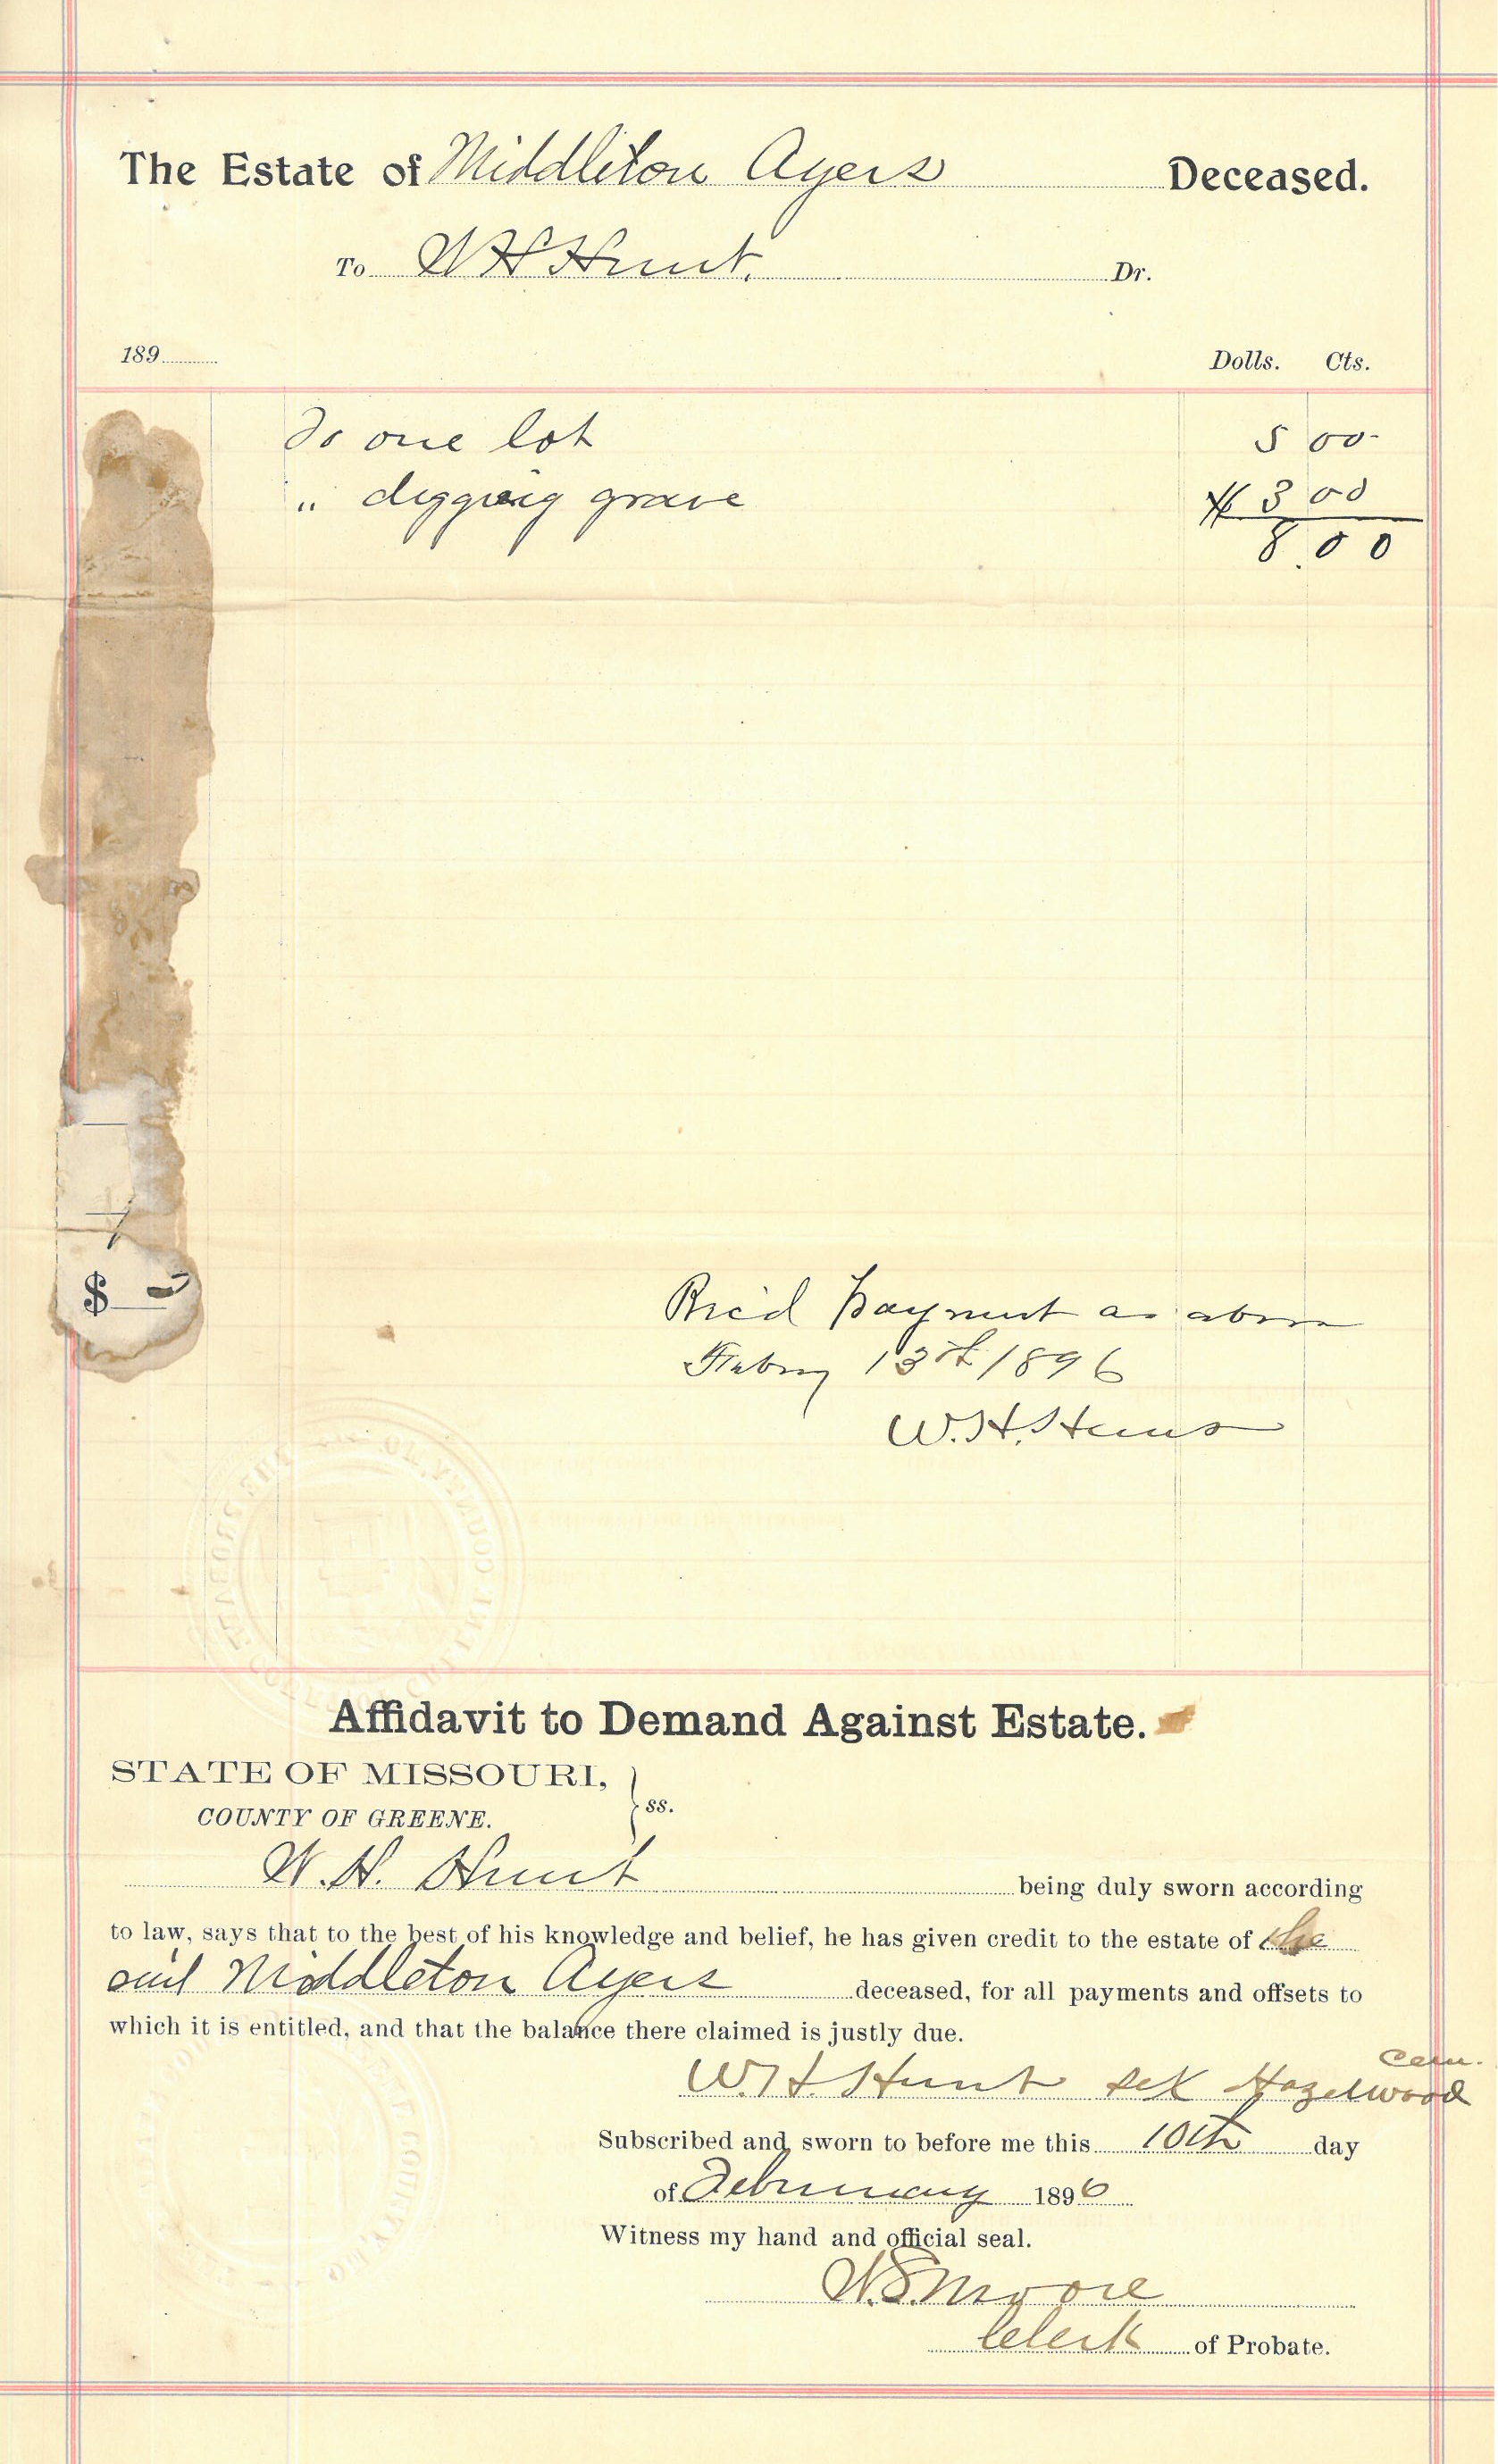 The Estate of Middleton Ayers Deceased.
To W H Hunt. Dr.
189 Dolls. Cts.
To one lot 5 00
" digging grave 3 00
8.00
$
Rec'd payment as above
Febry 13th 1896
W. H. Hunt
Affidavit to Demand Against Estate.
STATE OF MISSOURI,
COUNTY OF GREENE. } ss.
W. H. Hunt being duly sworn according
to law, says that to the best of his knowledge and belief, he has given credit to the estate of the
said Middleton Ayers deceased, for all payments and offsets to
which it is entitled, and that the balance there claimed is justly due.
Cem.
W. H. Hunt sex Hazelwood
Subscribed and sworn to before me this 10th day
of February 1896
Witness my hand and official seal.
W. S. Moore
Clerk of Probate.